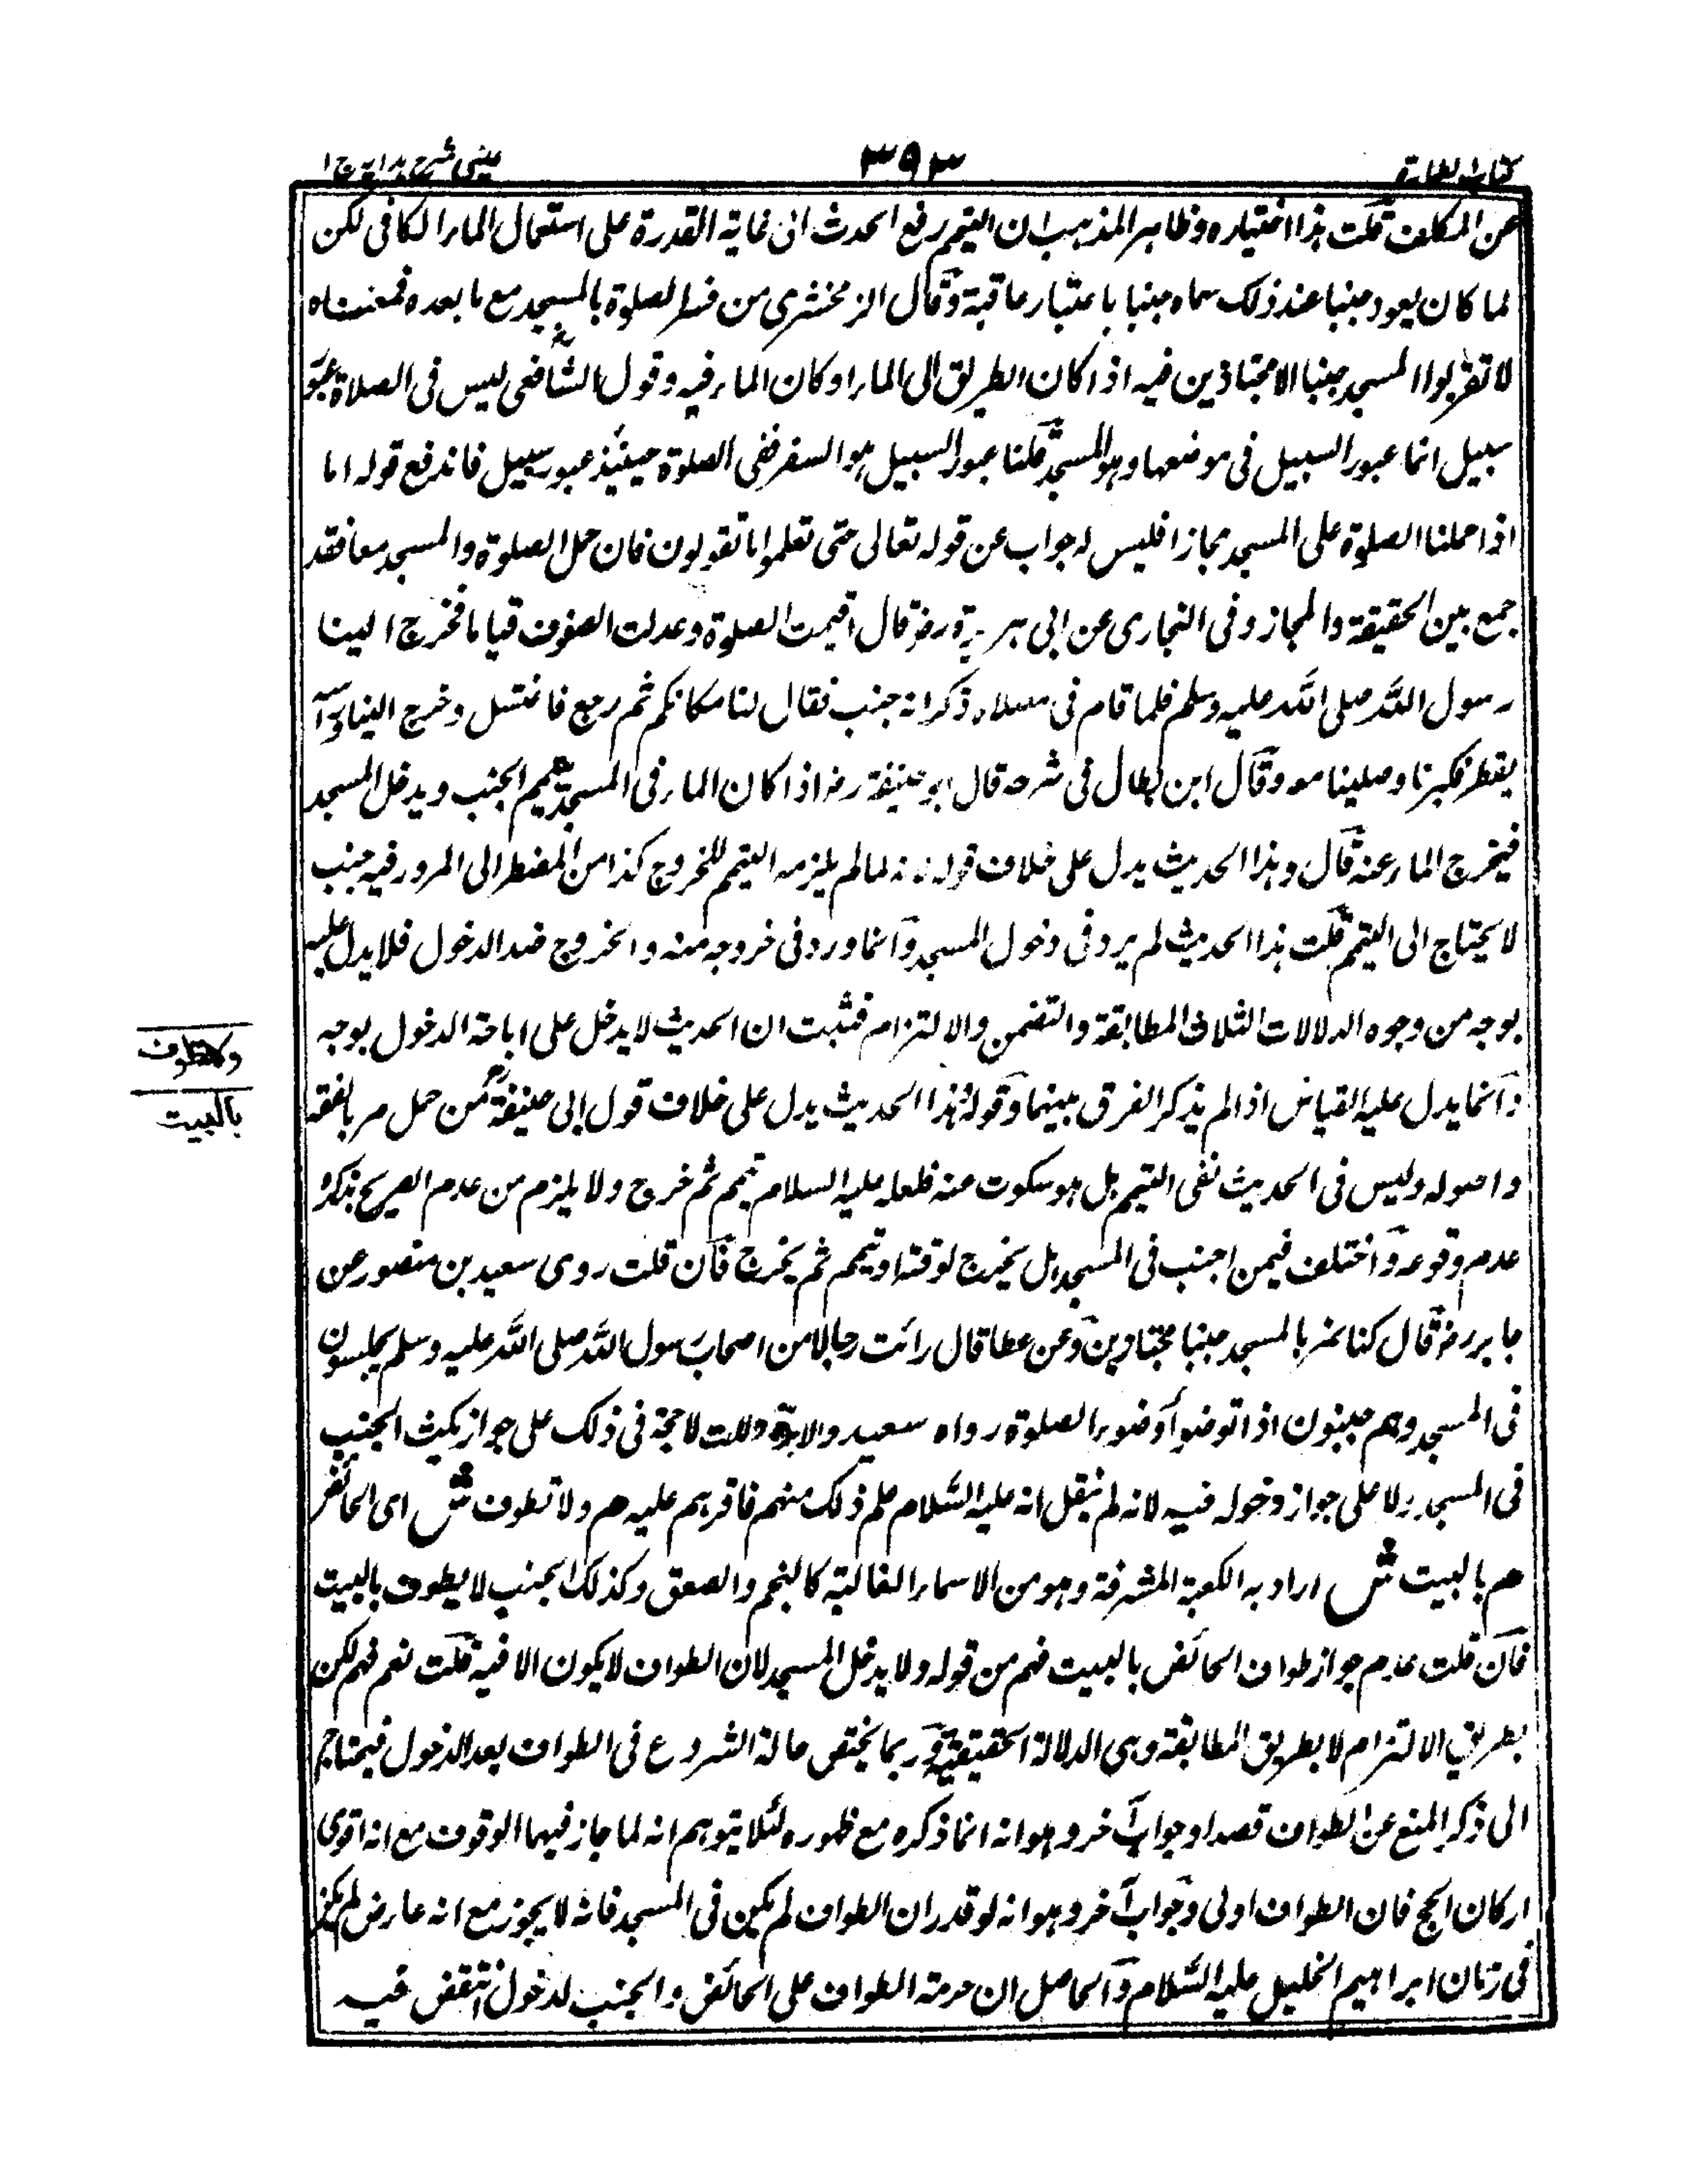 كتاب الطهارة
٣٩٣
عينى شرح هداية ج ١
عن المكلف قلت هذا اختياره وظاهر المذهب ان التيمم رفع الحدث الى غاية القدرة على استعمال الماء الكافى لكن
لما كان يعود جنبا عند ذلك سماه جنبا باعتبار عاقبة وقال الزمخشرى من فسر الصلوة بالمسجد مع ما بعده فمعناه
لا تقربوا المسجد جنبا الا مجتازين فيه اذا كان الطريق الى الماء او كان الماء فيه وقول الشافعى ليس فى الصلاة عبور
سبيل انما عبور السبيل فى موضعها وهو المسجد قلنا عبور السبيل هو السفر ففى الصلوة حينئذ عبور سبيل فاندفع قوله اما
اذا حملنا الصلوة على المسجد مجازا فليس له جواب عن قوله تعالى حتى تعلموا ما تقولون فان حمل الصلوة والمسجد معا فقد
جمع بين الحقيقة والمجاز وفى البخارى عن ابى هريرة رض قال اقيمت الصلوة وعدلت الصفوف قياما فخرج الينا
رسول الله صلى الله عليه وسلم فلما قام فى مصلاه ذكر انه جنب فقال لنا مكانكم ثم رجع فاغتسل وخرج الينا ورأسه
يقطر فكبرنا وصلينا معه وقال ابن بطال فى شرحه قال ابو حنيفة رض اذا كان الماء فى المسجد تيمم الجنب ويدخل المسجد
فيخرج الماء عنه قال وهذا الحديث يدل على خلاف قوله لانه لما لم يلزمه التيمم للخروج كذا من المضطر الى المرور فيه جنب
لا يحتاج الى التيمم قلت هذا الحديث لم يرد فى دخول المسجد وانما ورد فى خروجه منه والخروج ضد الدخول فلا يدل عليه
بوجه من وجوه الدلالات الثلاث المطابقة والتضمن والالتزام فثبت ان الحديث لا يدخل على اباحة الدخول بوجه
وانما يدل عليه القياس اذا لم يذكر الفرق بينهما وقوله هذا الحديث يدل على خلاف قول ابى حنيفة رح من حمل مر بالفقه
واصوله وليس فى الحديث نفى التيمم بل هو سكوت عنه فلعله عليه السلام تيمم ثم خرج ولا يلزم من عدم الصريح بذكره
عدم وقوعه واختلف فيمن اجنب فى المسجد هل يخرج لوقته او تيمم ثم يخرج فان قلت روى سعيد بن منصور عن
جابر رض قال كنا نمر بالمسجد جنبا مجتازين وعن عطا قال رائت رجالا من اصحاب رسول الله صلى الله عليه وسلم يجلسون
فى المسجد وهم مجنبون اذا توضوأ وضوء الصلوة رواه سعيد قلت لا حجة فى ذلك على جواز مكث الجنب
فى المسجد ولا على جواز دخوله فيه لانه لم ينقل انه عليه السلام علم ذلك منهم فاقرهم عليه هم ولا تطوف ش اى الحائض
هم بالبيت ش اراد به الكعبة المشرفة وهو من الاسماء الغالبة كالنجم والصعق وكذلك الجنب لا يطوف بالبيت
فان قلت عدم جواز طواف الحائض بالبيت فهم من قوله ولا يدخل المسجد لان الطواف لا يكون الا فيه قلت نعم فهم لكن
بطريق الالتزام لا بطريق المطابقة وهى الدلالة الحقيقية وربما يختص حالة الشروع فى الطواف بعد الدخول فيحتاج
الى ذكر المنع عن الطواف قصدا وجواب آخر وهو انه انما ذكره مع ظهوره لئلا يتوهم انه لما جاز فيها الوقوف مع انه اقوى
اركان الحج فان الطواف اولى وجواب آخر وهو انه لو قدر ان الطواف لم يكن فى المسجد فانه لا يجوز مع انه عارض لم يكن
فى زمان ابراهيم الخليل عليه السلام والحاصل ان حرمة الطواف على الحائض والجنب لدخول النقض فيه
ولا تطوف
بالبيت